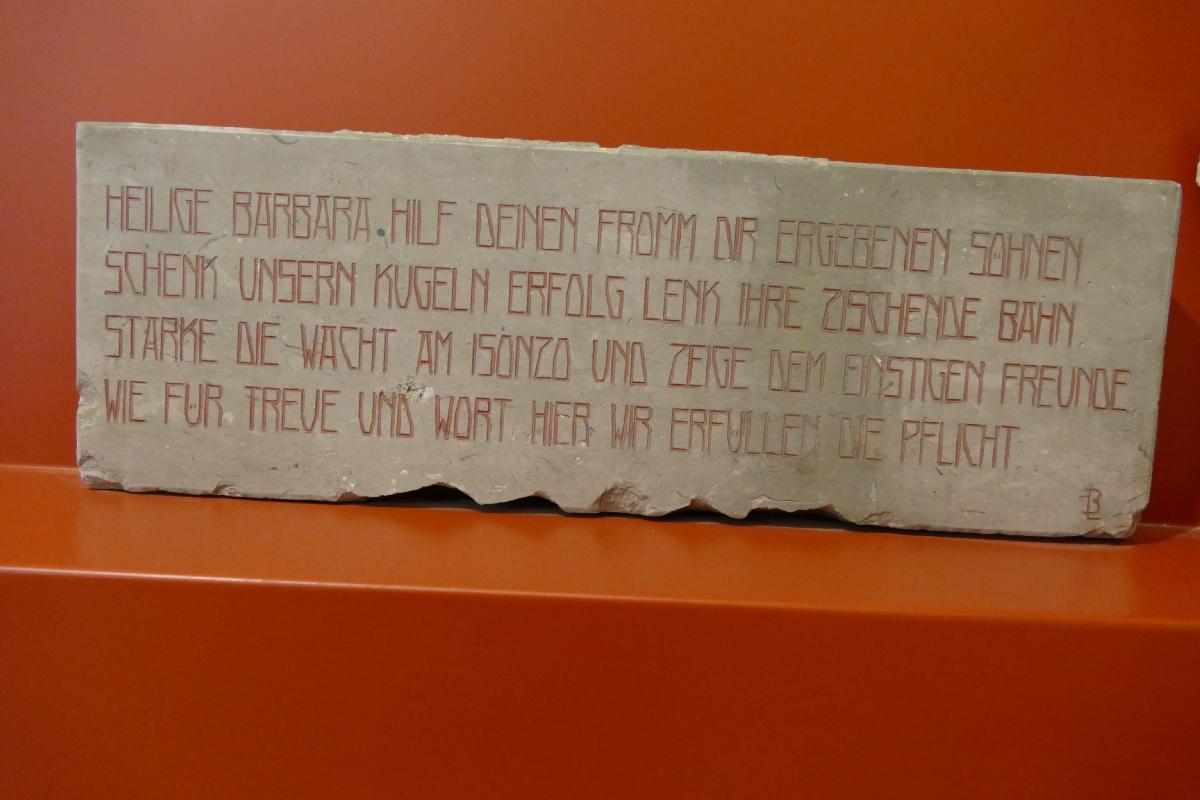 HEILIGE BARBARA HILF DEINEN FROMM DIR ERGEBENEN SÖHNEN
SCHENK UNSERN KUGELN ERFOLG, LENK IHRE ZISCHENDE BAHN
STÄRKE DIE WACHT AM ISONZO UND ZEIGE DEM EINSTIGEN FREUNDE
WIE FÜR TREUE UND WORT HIER WIR ERFÜLLEN DIE PFLICHT